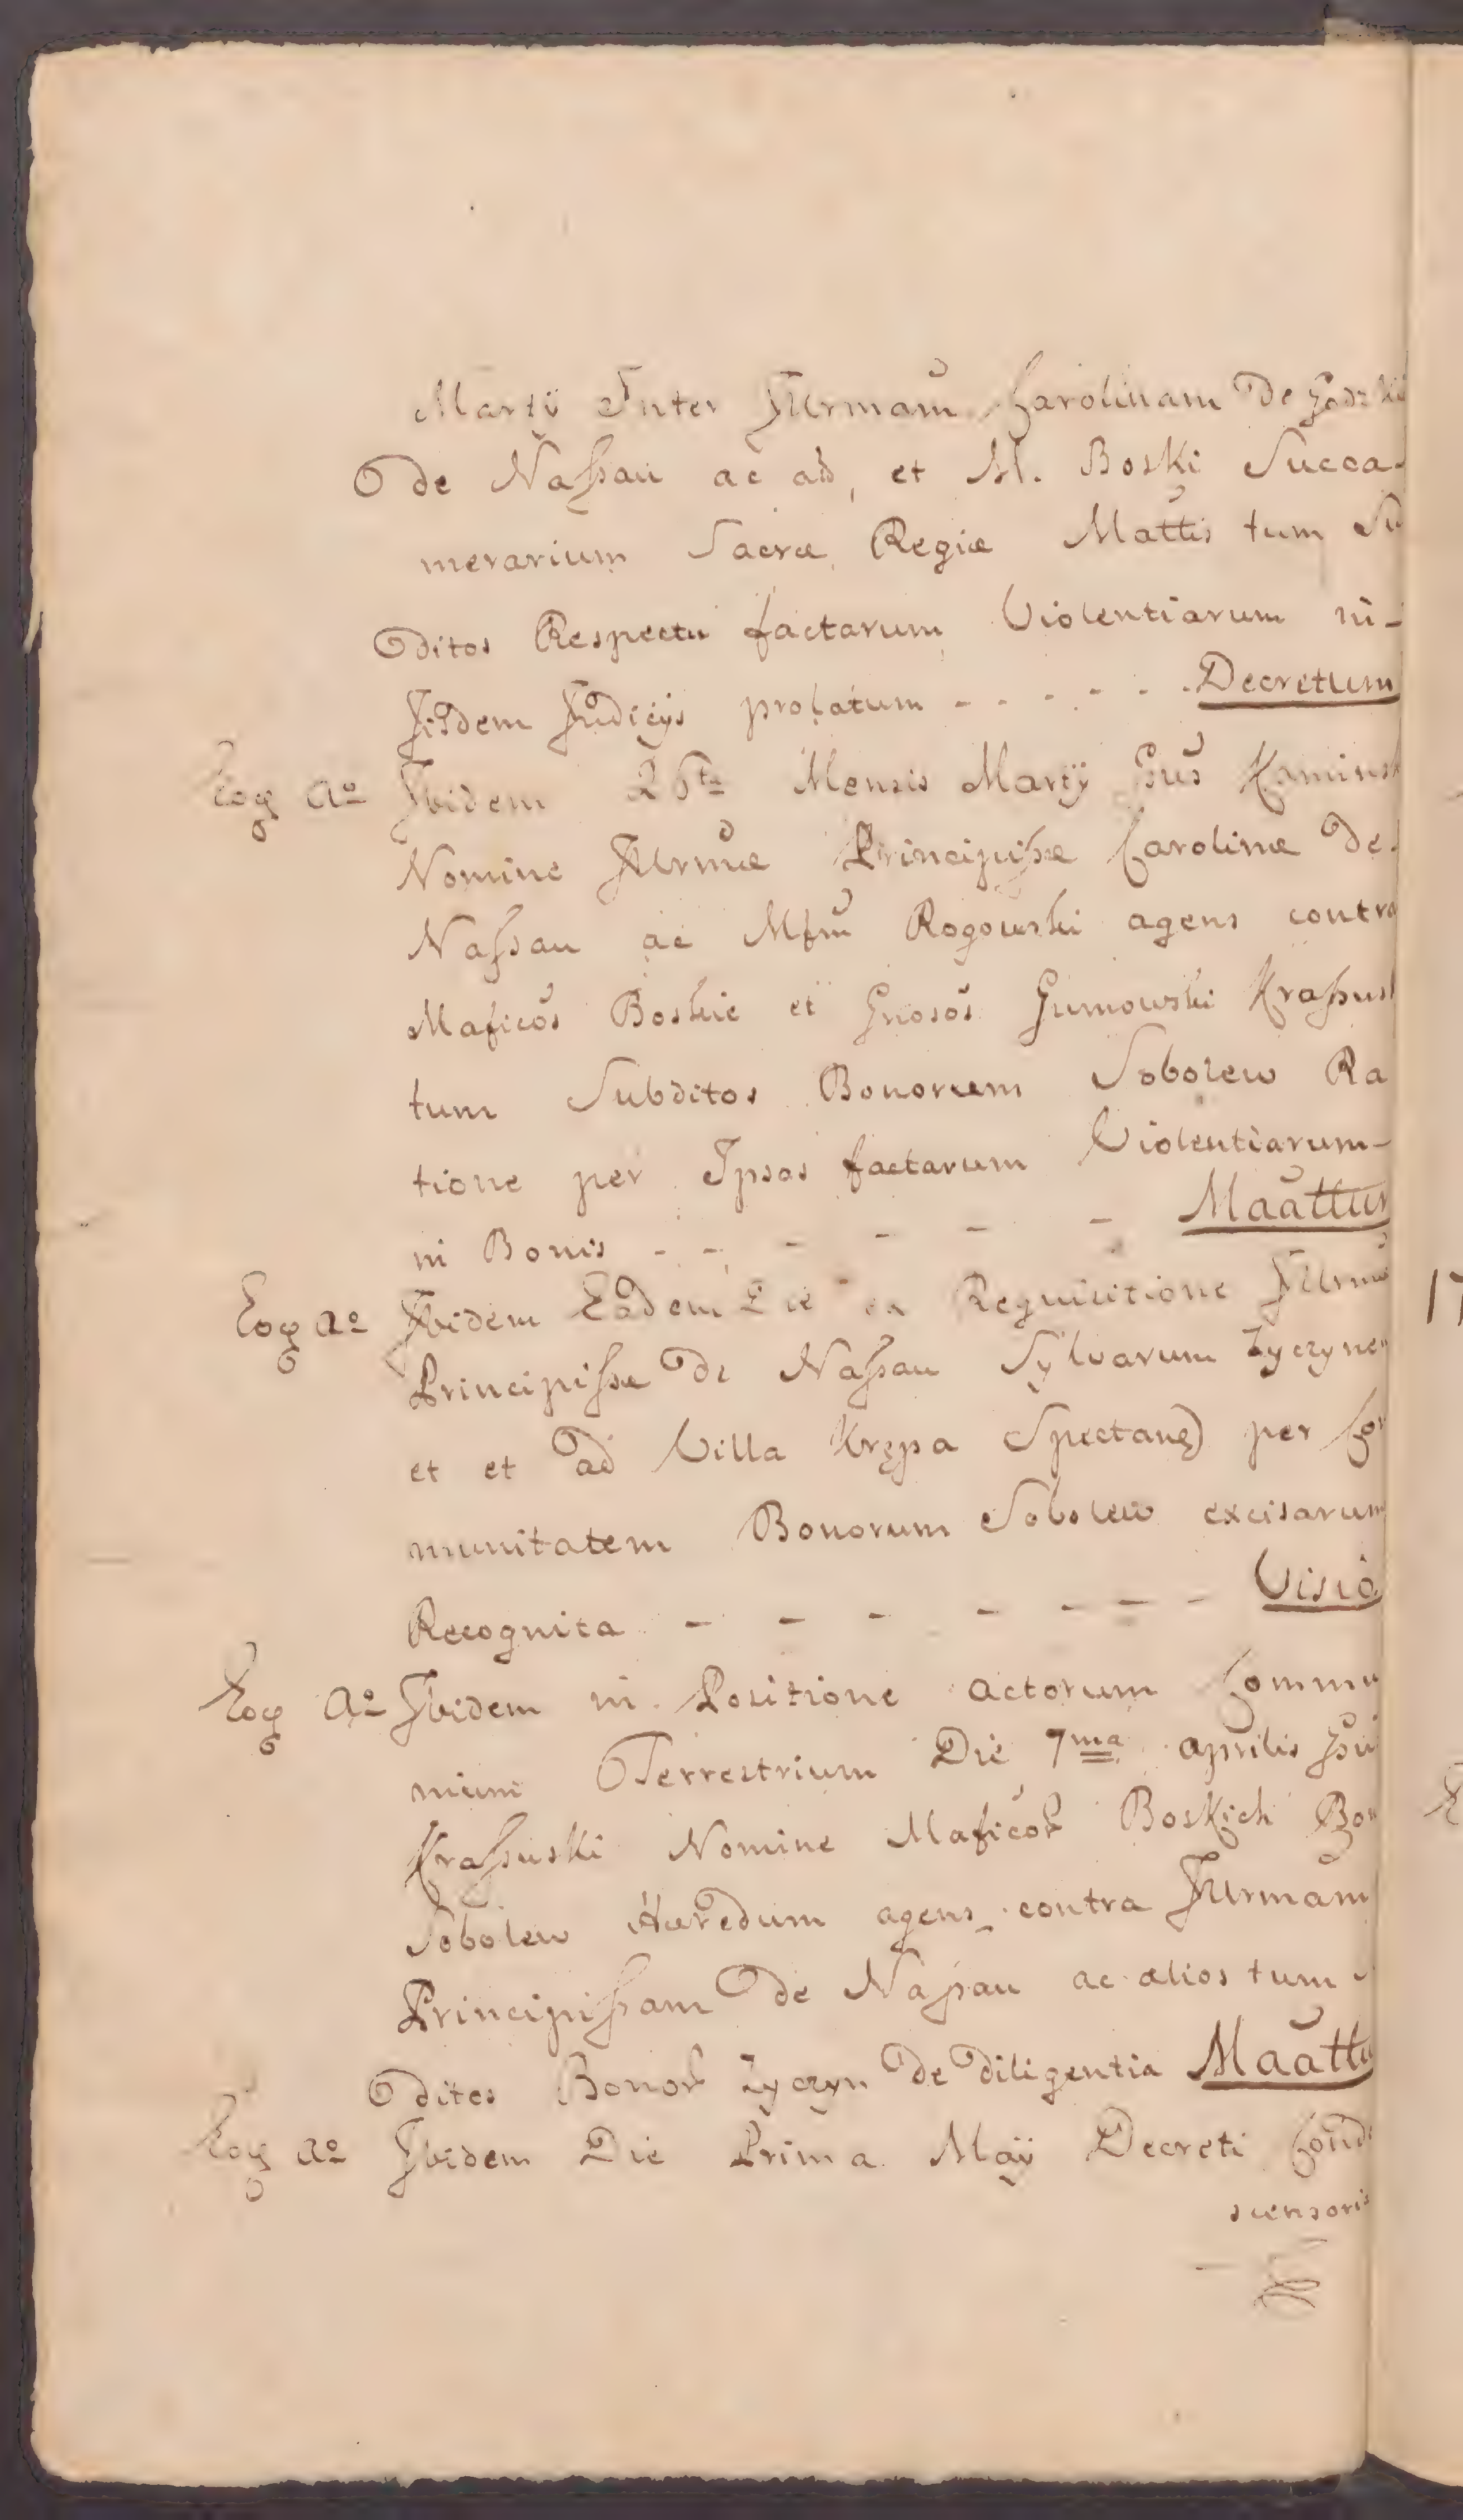 Martÿ Inter Jllrmam Carolinam De Godzkii
de Naſsau ac ad, et M. Boski Succa-
merarium Sacræ Regiæ Mattis tum Su
ditos Respectu factarum Violentiarum in-
Jisdem Judicÿs prolatum - - - - - Decretum
Eoq Ao Ibidem 26ta Mensis Martÿ Gsus Kaminsk
Nomine Jllrmæ Principiſsæ Carolinæ De
Naſsau ac Mfm Rogowski agens contra
Maficos Boskie et Gnosos Gumowski Kraſusk
tum Subditos Bonorum Sobolew Ra
tione per Ipsos factarum Violentiarum-
in Bonis - - - - - - Maattur
Eoq Ao Ibidem Eadem Die ex Requisitione Jllrmæ
Principiſsæ de Naſsau Sylvarum Zyczynen
et et ad Villa Krępa Spectang) per Com
munitatem Bonorum Sobolew excisarum
Recognita - - - - - - - Visio
Eoq Ao Ibidem in Positione actorum Commu
nium Terrestrium Die 7ma aprilis
Kraſsuski Nomine Maficor Boskich Bon
Sobolew Hæredum agens contra Jllrmam
Principiſsam de Naſsau ac alios tum
dites Bonor Zyczyn De Diligentia Maattu
Eoq Ao Ibidem Die Prima Maÿ Decreti Conde
scensoris